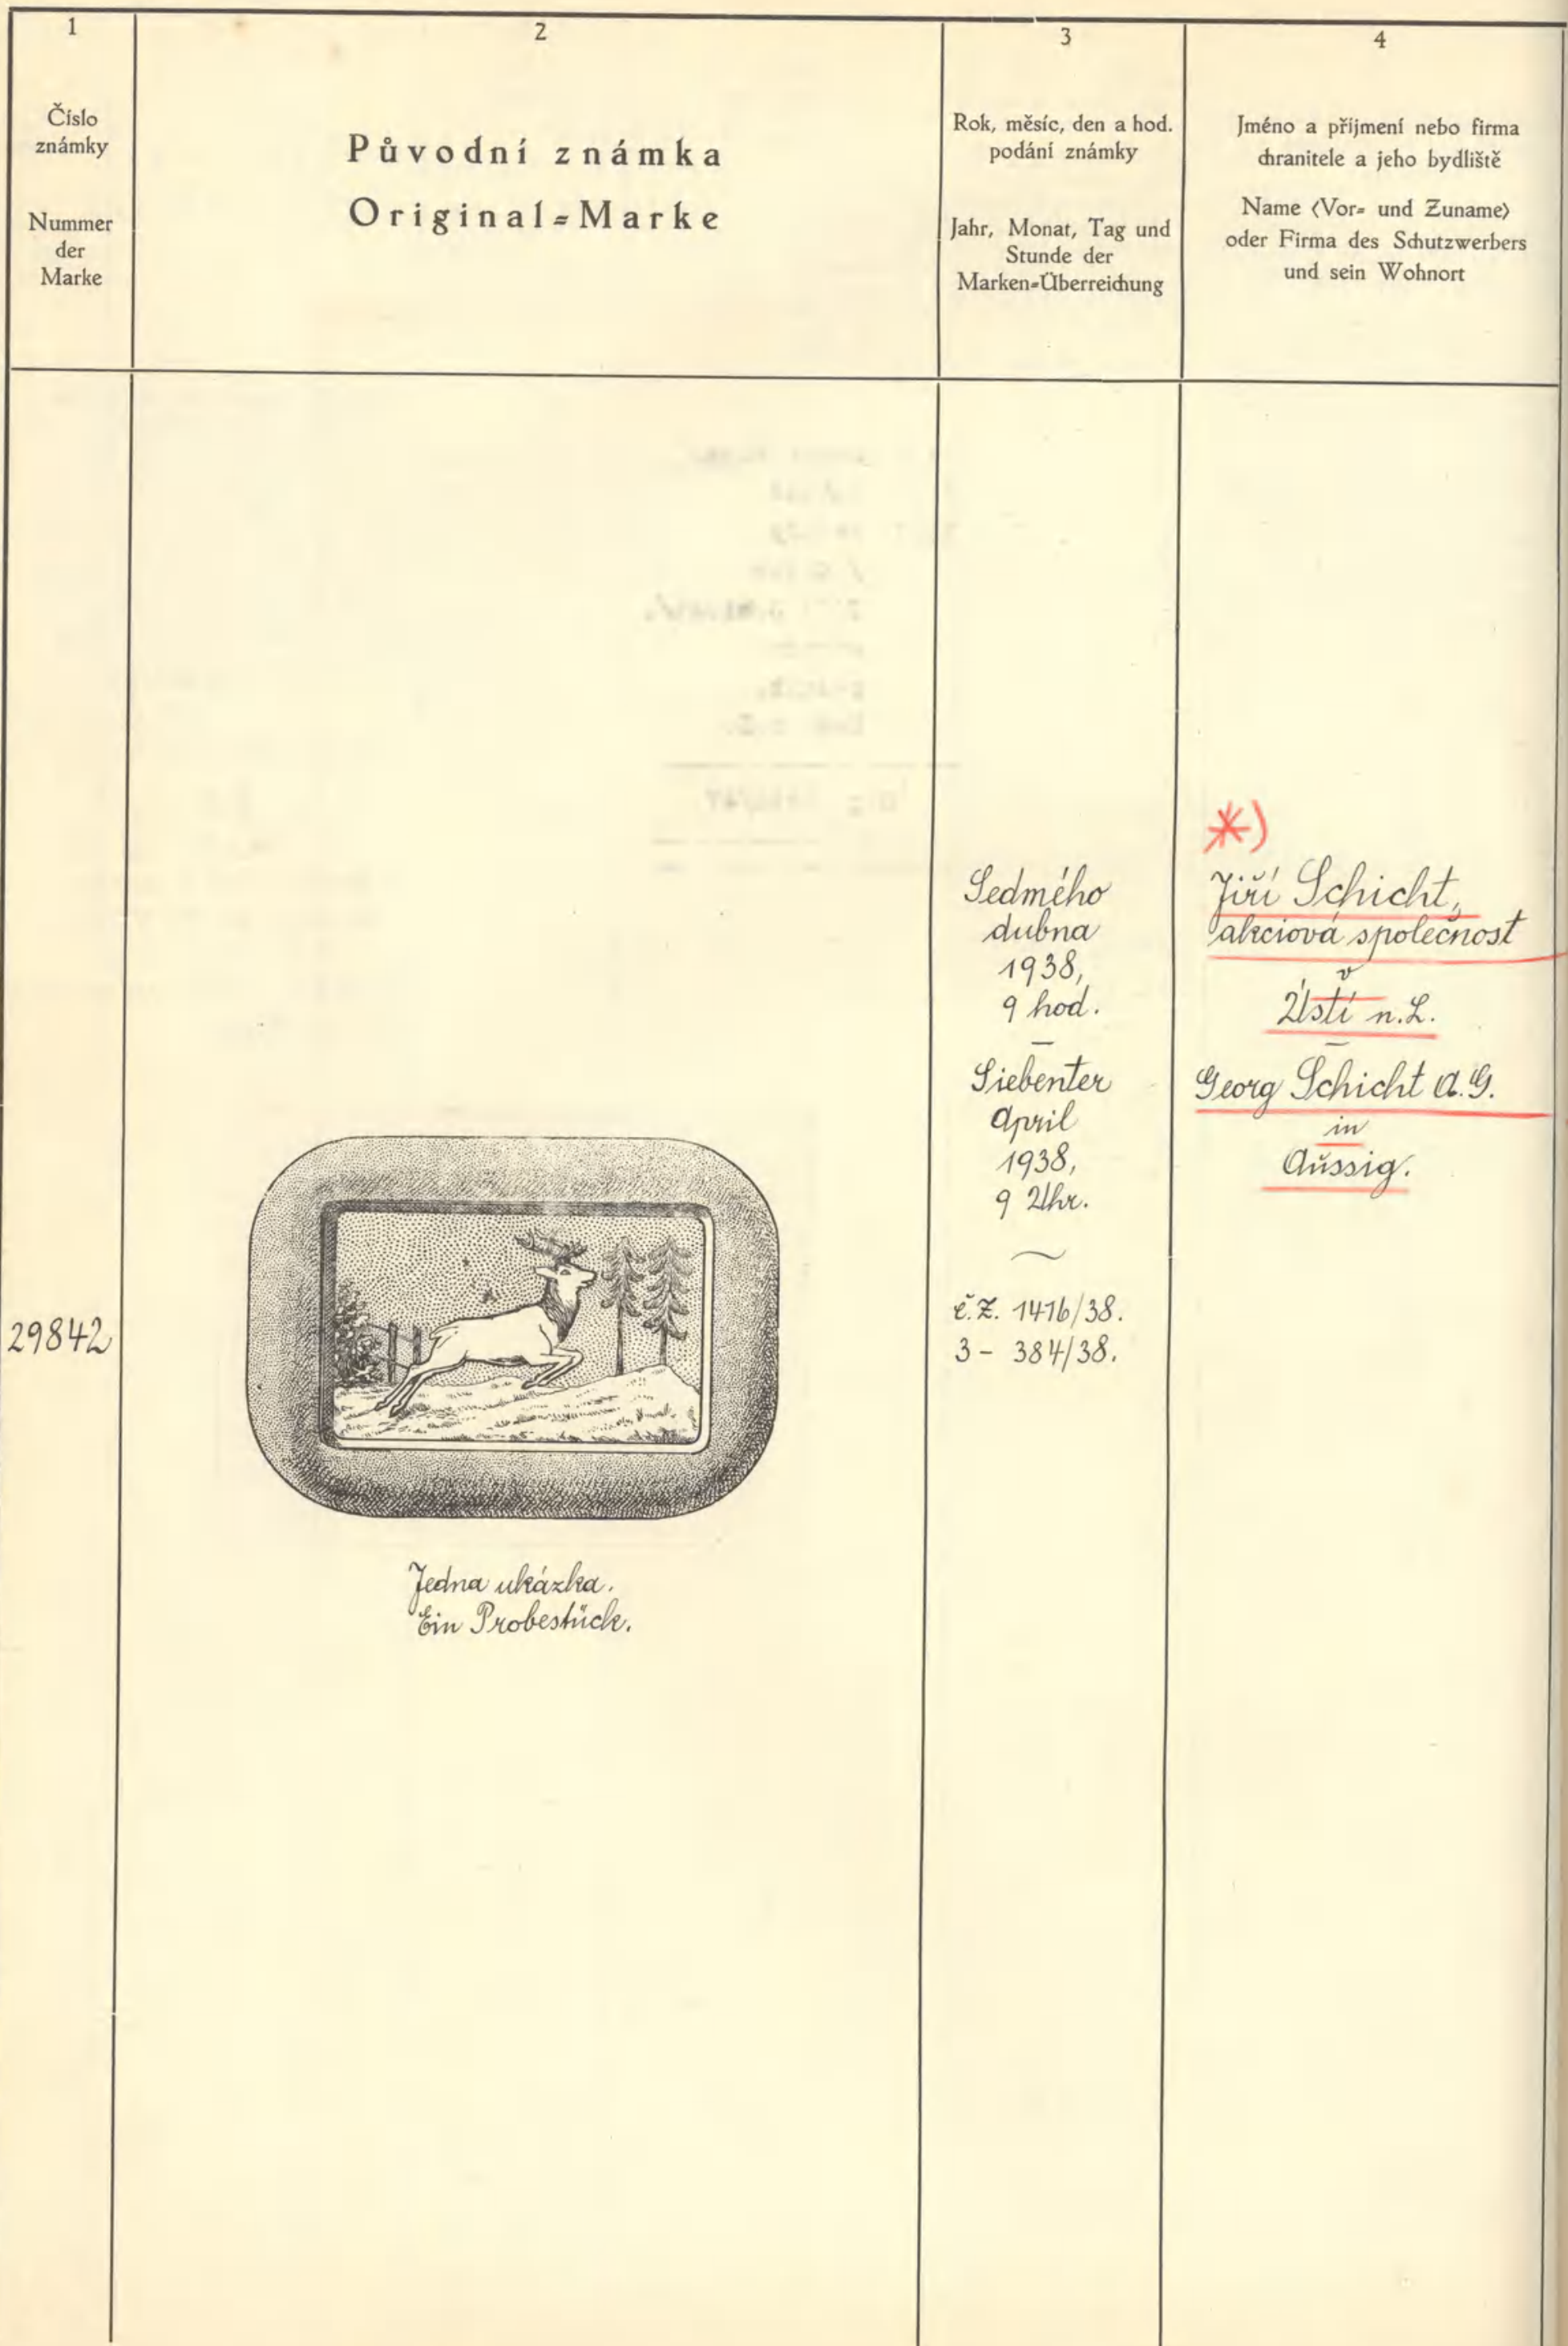 1
Číslo
známky
Nummer
der
Marke
2
Původní známka
Original=Marke
3
Rok, měsíc, den a hod.
podání známky
Jahr, Monat, Tag und
Stunde der
Marken=Überreichung
4
Jméno a přijmení nebo firma
chranitele a jeho bydliště
Name (Vor= und Zuname)
oder Firma des Schutzwerbers
und sein Wohnort
29842
Jedna ukázka.
Ein Probestück.
Sedmého
dubna
1938,
9 hod.
—
Siebenter
April
1938,
9 Uhr.
č.ž. 1416/38.
3 - 384/38.
*)
Jiří Schicht,
akciová společnost
v
Ústí n.L.
—
Georg Schicht A.G.
in
Aussig.